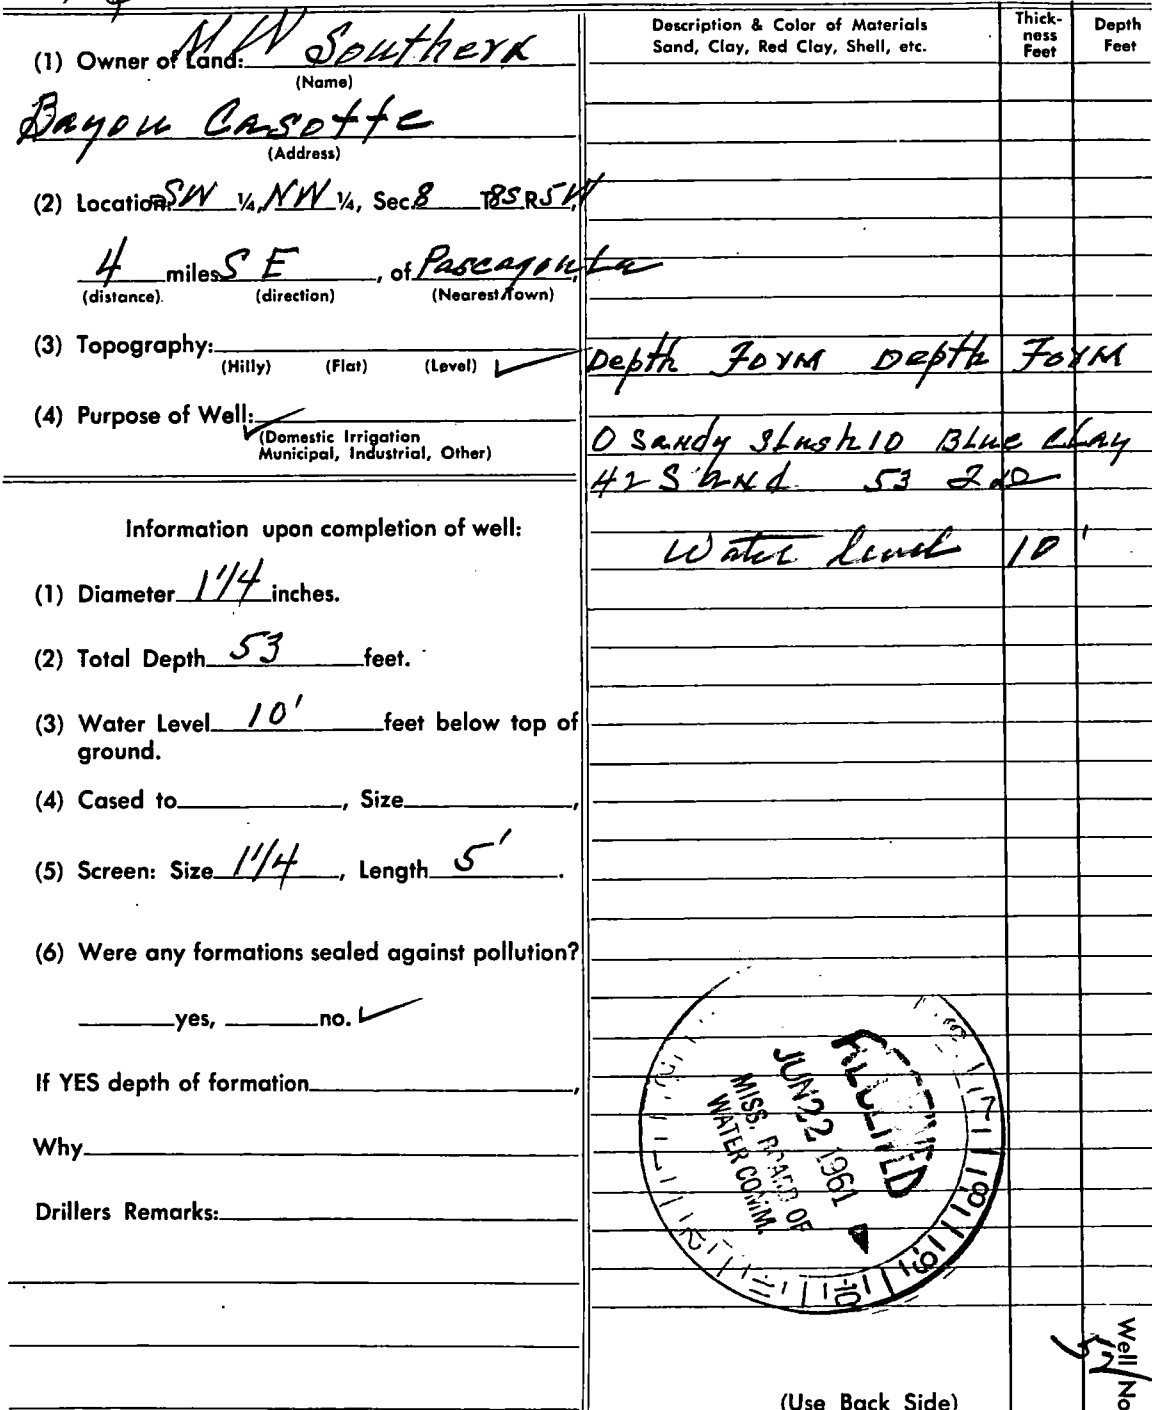 (1) Owner of Land: M W Southern
(Name)
Bayou Casotte
(Address)
(2) Location: SW ¼, NW ¼, Sec. 8 T 8S R 5W
4 miles S E, of Pascagoula
(distance). (direction) (Nearest Town)
(3) Topography:
(Hilly) (Flat) (Level) ✓
(4) Purpose of Well:
✓ (Domestic Irrigation
Municipal, Industrial, Other)
Information upon completion of well:
(1) Diameter 1 1/4 inches.
(2) Total Depth 53 feet.
(3) Water Level 10' feet below top of
ground.
(4) Cased to , Size ,
(5) Screen: Size 1 1/4, Length 5'.
(6) Were any formations sealed against pollution?
yes, no. ✓
If YES depth of formation ,
Why
Drillers Remarks:
Description & Color of Materials
Sand, Clay, Red Clay, Shell, etc.
Thick-
ness
Feet
Depth
Feet
Depth Form Depth Form
0 Sandy Slush 10 Blue Clay
42 Sand 53
Water level 10'
RECEIVED
JUN 22 1961
MISS. BOARD OF
WATER COMM.
(Use Back Side)
Well No